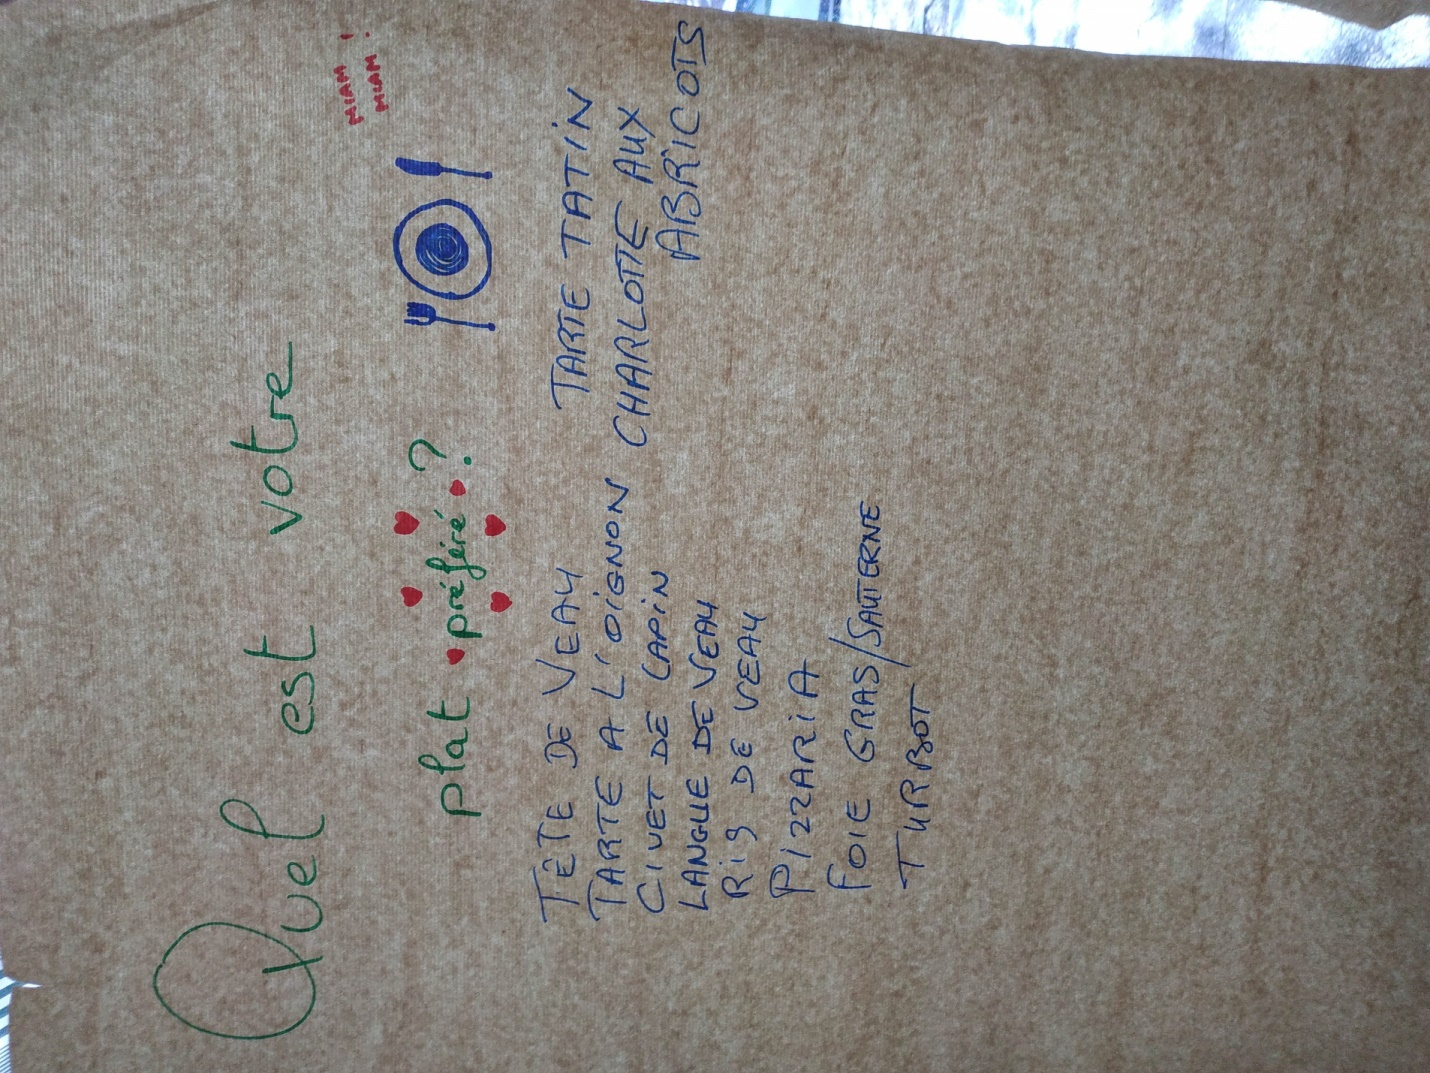 Quel est votre
plat préféré ?
MIAM !
MIAM !
TÊTE DE VEAU
TARTE A L'OIGNON
CIVET DE LAPIN
LANGUE DE VEAU
RiS DE VEAU
PIZZARIA
FOIE GRAS/SAUTERNE
TURBOT
TARTE TATiN
CHARLOTTE AUX
ABRICOTS